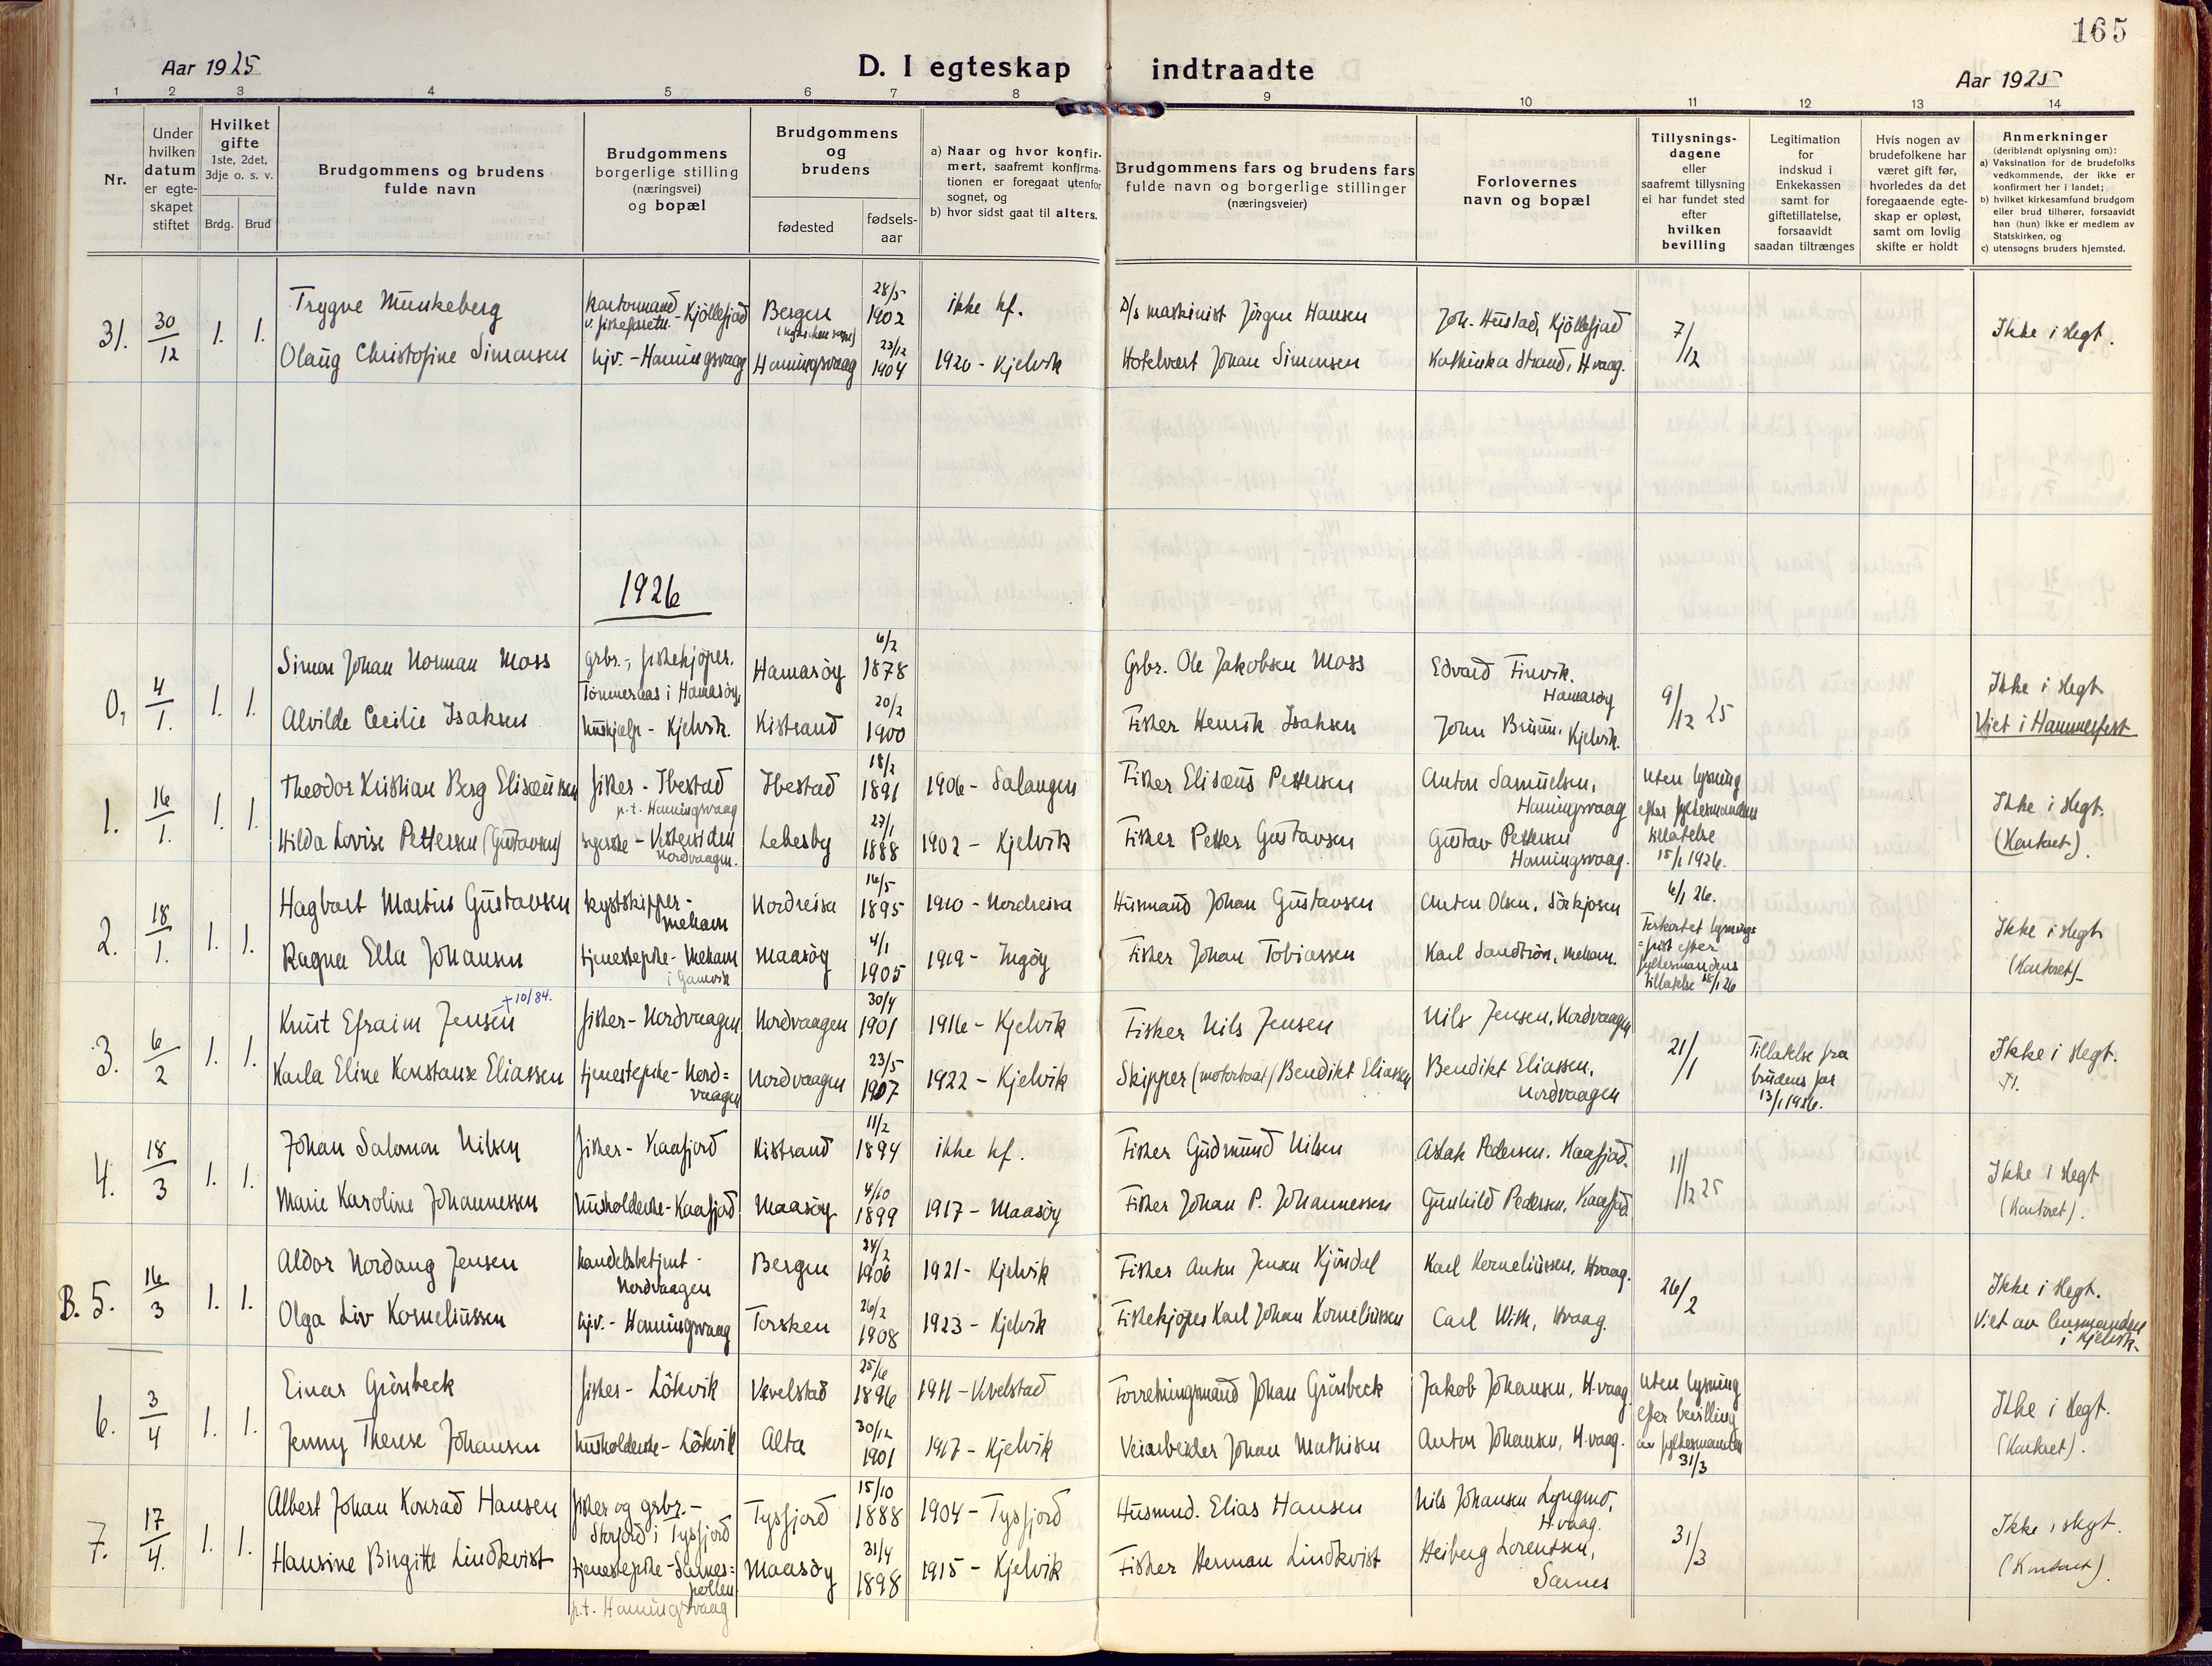 165
Aar 1925
D. I egteskap indtraadte
Aar 1925
1 2 3 4 5 6 7 8 9 10 11 12 13 14
Nr.
Under hvilken datum er egteskapet stiftet
Hvilket gifte 1ste, 2det, 3dje o. s. v.
Brdg. Brud
Brudgommens og brudens fulde navn
Brudgommens borgerlige stilling (næringsvei) og bopæl
Brudgommens og brudens
fødested
fødsels-aar
a) Naar og hvor konfirmert, saafremt konfirmationen er foregaat utenfor sognet, og
b) hvor sidst gaat til alters.
Brudgommens fars og brudens fars fulde navn og borgerlige stillinger (næringsveier)
Forlovernes navn og bopæl
Tillysnings-dagene eller saafremt tillysning ei har fundet sted efter hvilken bevilling
Legitimation for indskud i Enkekassen samt for giftetillatelse, forsaavidt saadan tiltrænges
Hvis nogen av brudefolkene har været gift før, hvorledes da det foregaaende egteskap er opløst, samt om lovlig skifte er holdt
Anmerkninger (deriblandt oplysning om):
a) Vaksination for de brudefolks vedkommende, der ikke er konfirmert her i landet;
b) hvilket kirkesamfund brudgom eller brud tilhører, forsaavidt han (hun) ikke er medlem av Statskirken, og
c) utensogns bruders hjemsted.
31. 30/12 1. 1. Trygve Munkeberg kontormand - Kjöllefjord Bergen 28/5 1902 ikke kf. D/s maskinist Jörgen Hansen Joh. Hustad, Kjöllefjord 7/12 Ikke i slegt.
Olaug Christofine Simonsen hjv. - Honningsvaag Honningsvaag 23/12 1904 1920 - Kjelvik Hotelvert Johan Simonsen Kathinka Strand, Hvaag.
1926
0, 4/1. 1. 1. Simon Johan Norman Moss grbr., fiskekjöper. Tömmeraas i Hamaröy Hamaröy 6/2 1878 Grbr. Ole Jakobsen Moss Edvard Finvik. Hamaröy 9/12 25 Ikke i slegt
Alvilde Cecilie Isaksen hushjelp - Kjelvik. Kistrand 20/2 1900 Fisker Henrik Isaksen John Bruun, Kjelvik. Viet i Hammerfest
1. 16/1. 1. 1. Theodor Kristian Berg Elisæussen fisker - Ibestad p.t. Honningsvaag Ibestad 18/2 1891 1906 - Salangen Fisker Elisæus Pettersen Anton Samuelsen, Honningsvaag uten lysning efter fylkesmandens tillatelse 15/1 1926. Ikke i slegt.
Hilda Lovise Pettersen (Gustavsen) syerske - Vestersiden Nordvaagen. Lebesby 27/1 1888 1902 - Kjelvik Fisker Petter Gustavsen Gustav Pettersen Honningsvaag. (Kontoret).
2. 18/1. 1. 1. Hagbart Martius Gustavsen kystskipper - Mehavn Nordreisa 16/5 1895 1910 - Nordreisa Husmand Johan Gustavsen Anton Olsen, Sörkjosen 6/1 26. Forkortet lysningsfrist efter fylkesmandens tillatelse 18/1 26 Ikke i slegt
Ragna Ella Johansen tjenestepike - Mehavn i Gamvik Maasöy 4/1 1905 1919 - Ingöy Fisker Johan Tobiassen Karl Sandtrön, Mehavn. (Kontoret)
3. 6/2 1. 1. Knut Efraim Jensen +10/84. fisker - Nordvaagen Nordvaagen 30/4 1901 1916 - Kjelvik Fisker Nils Jensen Nils Jensen, Nordvaagen 21/1 Tillatelse fra brudens far 13/1 1926. Ikke i slegt.
Karla Eline Konstanse Eliassen tjenestepike - Nordvaagen Nordvaagen 23/5 1907 1922 - Kjelvik Skipper (motorbaat) Bendikt Eliassen Bendikt Eliassen, Nordvaagen
4. 18/3 1. 1. Johan Salomon Nilsen fisker - Kaafjord Kistrand 11/2 1894 ikke kf. Fisker Gudmund Nilsen Aslak Pedersen. Kaafjord. 11/12 25 Ikke i slegt
Marie Karoline Johannessen husholderske - Kaafjord Maasöy 4/10 1899 1917 - Maasöy Fisker Johan P. Johannessen Gunhild Pedersen, Kaafjord (Kontoret).
B. 5. 16/3 1. 1. Aldor Nordang Jensen handelsbetjent - Nordvaagen Bergen 24/2 1906 1921 - Kjelvik Fisker Anton Jensen Kjöndal Karl Korneliussen, Hvaag. 26/2 Ikke i slegt.
Olga Liv Korneliussen hjv. - Honningsvaag Torsken 26/2 1908 1923 - Kjelvik Fiskekjöper Karl Johan Korneliussen Carl With, Hvaag. Viet av lensmanden i Kjelvik.
6. 3/4 1. 1. Einar Grönbeck fisker - Lökvik Vevelstad 25/6 1896 1911 - Vevelstad Forretningsmand Johan Grönbeck Jakob Johansen, H.vaag. uten lysning efter bevilling av fylkesmanden 31/3 Ikke i slegt.
Jenny Therese Johansen husholderske - Lökvik Alta 30/12 1901 1917 - Kjelvik Veiarbeider Johan Mathisen Anton Johansen, H.vaag. (Kontoret).
7. 17/4. 1. 1. Albert Johan Konrad Hansen fisker og grbr. - Skarfjord i Tysfjord Tysfjord 15/10 1888 1904 - Tysfjord Husmnd. Elias Hansen Nils Johansen Lyngmo, H.vaag. 31/3 Ikke i slegt.
Hansine Birgitte Lindkvist tjenestepike - Sarnespollen p.t. Honningsvaag Maasöy 31/4 1898 1915 - Kjelvik Fisker Herman Lindkvist Heiberg Lorentsen, Sarnes (Kontoret).